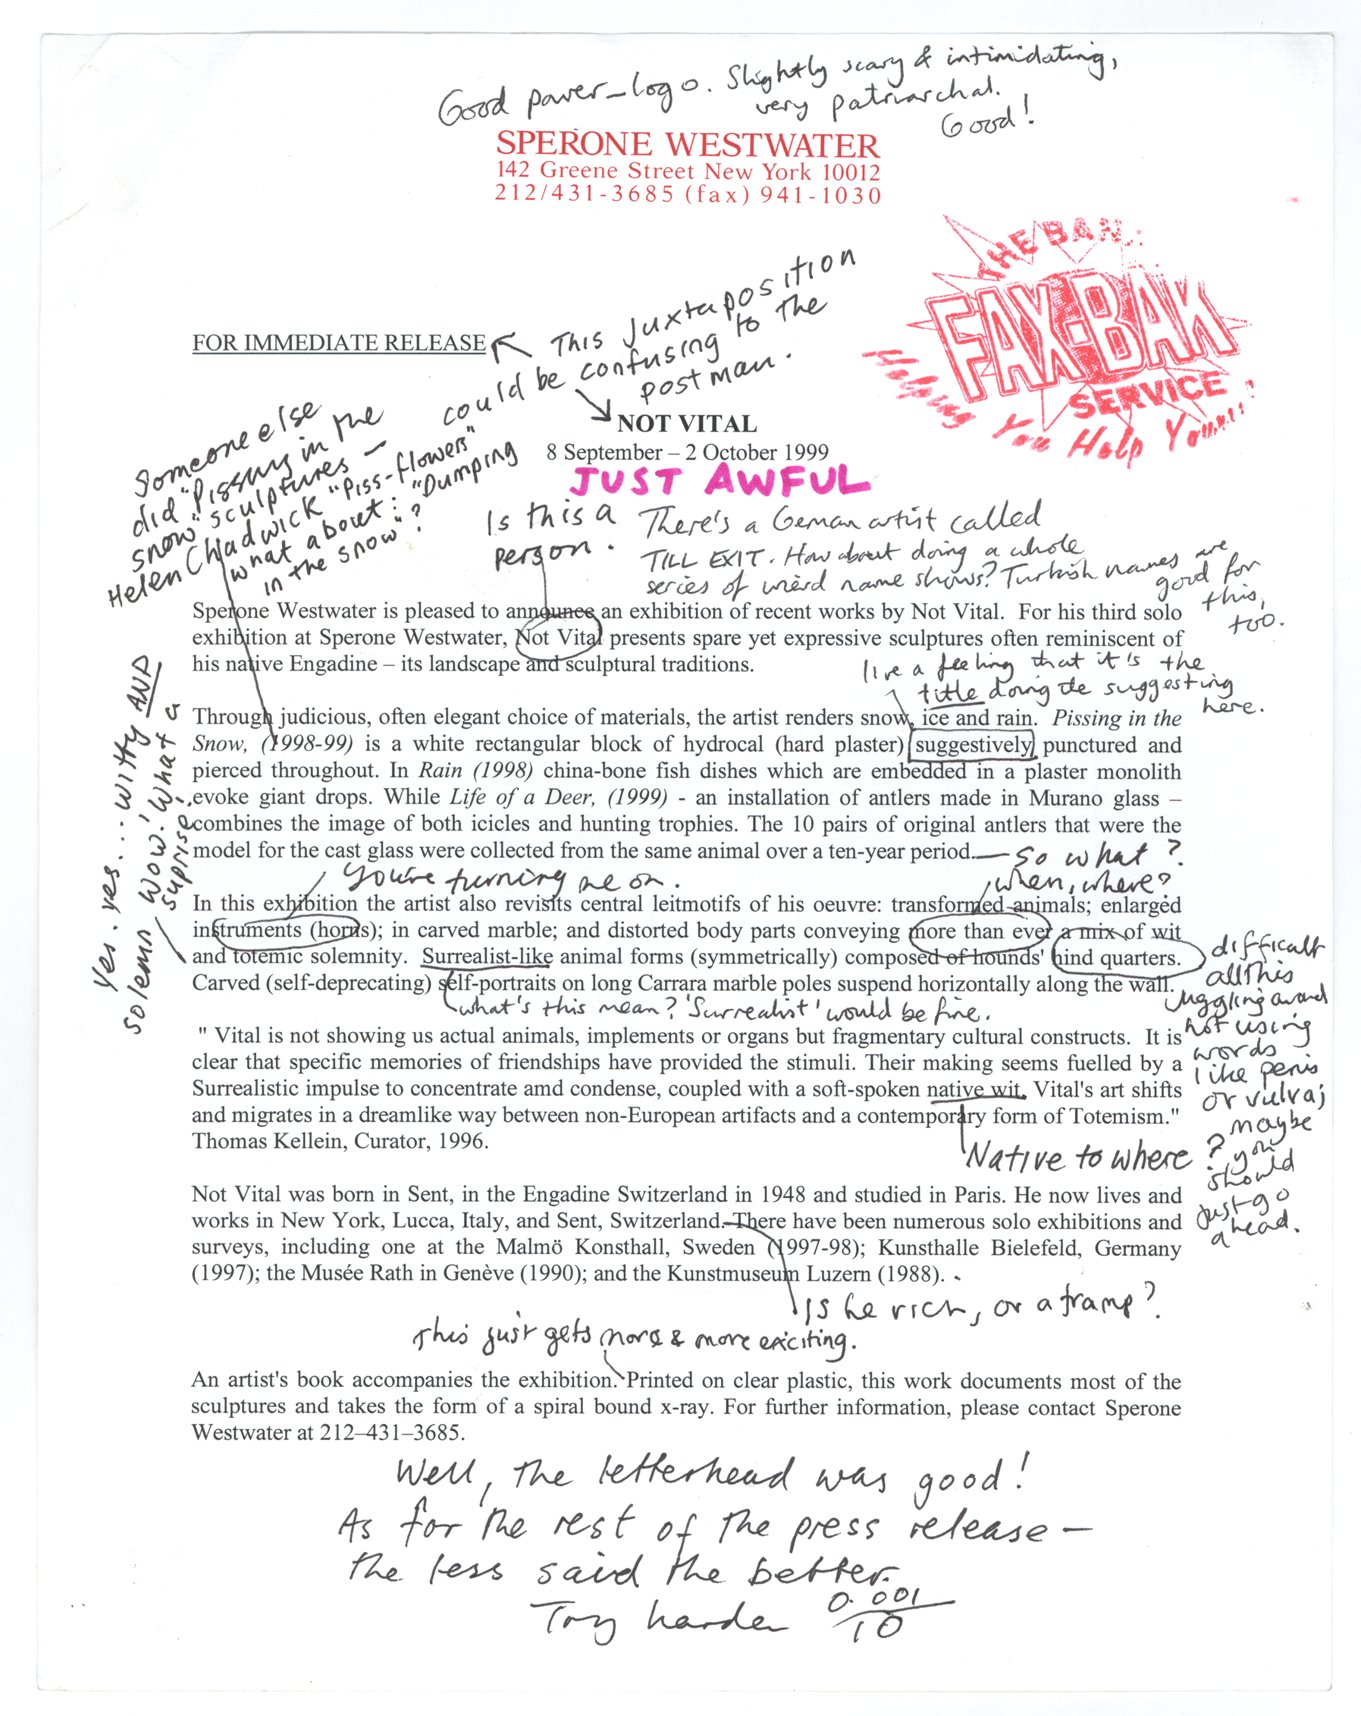 Good power-logo. Slightly scary & intimidating,
very patriarchal.
Good!
SPERONE WESTWATER
142 Greene Street New York 10012
212/431-3685 (fax) 941-1030
THE BANK
FAX-BAK
SERVICE
Helping You Help Yourself
FOR IMMEDIATE RELEASE
This juxtaposition
could be confusing to the
postman.
NOT VITAL
8 September – 2 October 1999
JUST AWFUL
Someone else
did "Pissing in the
snow" sculptures –
Helen Chadwick "Piss-flowers"
what about: "Dumping
in the snow"?
Is this a
person.
There's a German artist called
TILL EXIT. How about doing a whole
series of weird name shows? Turkish names are
good for
this,
too.
Sperone Westwater is pleased to announce an exhibition of recent works by Not Vital. For his third solo
exhibition at Sperone Westwater, Not Vital presents spare yet expressive sculptures often reminiscent of
his native Engadine – its landscape and sculptural traditions.
I've a feeling that it's the
title doing the suggesting
here.
Through judicious, often elegant choice of materials, the artist renders snow, ice and rain. Pissing in the
Snow, (1998-99) is a white rectangular block of hydrocal (hard plaster) suggestively punctured and
pierced throughout. In Rain (1998) china-bone fish dishes which are embedded in a plaster monolith
evoke giant drops. While Life of a Deer, (1999) - an installation of antlers made in Murano glass –
combines the image of both icicles and hunting trophies. The 10 pairs of original antlers that were the
model for the cast glass were collected from the same animal over a ten-year period.
So what?
You're turning me on.
when, where?
Yes. yes... witty AND
solemn. Wow! What a
suprise.
In this exhibition the artist also revisits central leitmotifs of his oeuvre: transformed animals; enlarged
instruments (horns); in carved marble; and distorted body parts conveying more than ever a mix of wit
and totemic solemnity. Surrealist-like animal forms (symmetrically) composed of hounds' hind quarters.
Carved (self-deprecating) self-portraits on long Carrara marble poles suspend horizontally along the wall.
what's this mean? 'Surrealist' would be fine.
difficult
all this
juggling around
not using
words
like penis
or vulva;
maybe
you
should
just go
ahead.
" Vital is not showing us actual animals, implements or organs but fragmentary cultural constructs. It is
clear that specific memories of friendships have provided the stimuli. Their making seems fuelled by a
Surrealistic impulse to concentrate amd condense, coupled with a soft-spoken native wit. Vital's art shifts
and migrates in a dreamlike way between non-European artifacts and a contemporary form of Totemism."
Thomas Kellein, Curator, 1996.
Native to where?
Not Vital was born in Sent, in the Engadine Switzerland in 1948 and studied in Paris. He now lives and
works in New York, Lucca, Italy, and Sent, Switzerland. There have been numerous solo exhibitions and
surveys, including one at the Malmö Konsthall, Sweden (1997-98); Kunsthalle Bielefeld, Germany
(1997); the Musée Rath in Genève (1990); and the Kunstmuseum Luzern (1988).
Is he rich, or a tramp?
This just gets more & more exciting.
An artist's book accompanies the exhibition. Printed on clear plastic, this work documents most of the
sculptures and takes the form of a spiral bound x-ray. For further information, please contact Sperone
Westwater at 212–431–3685.
Well, the letterhead was good!
As for the rest of the press release –
the less said the better.
Try harder 0.001/10